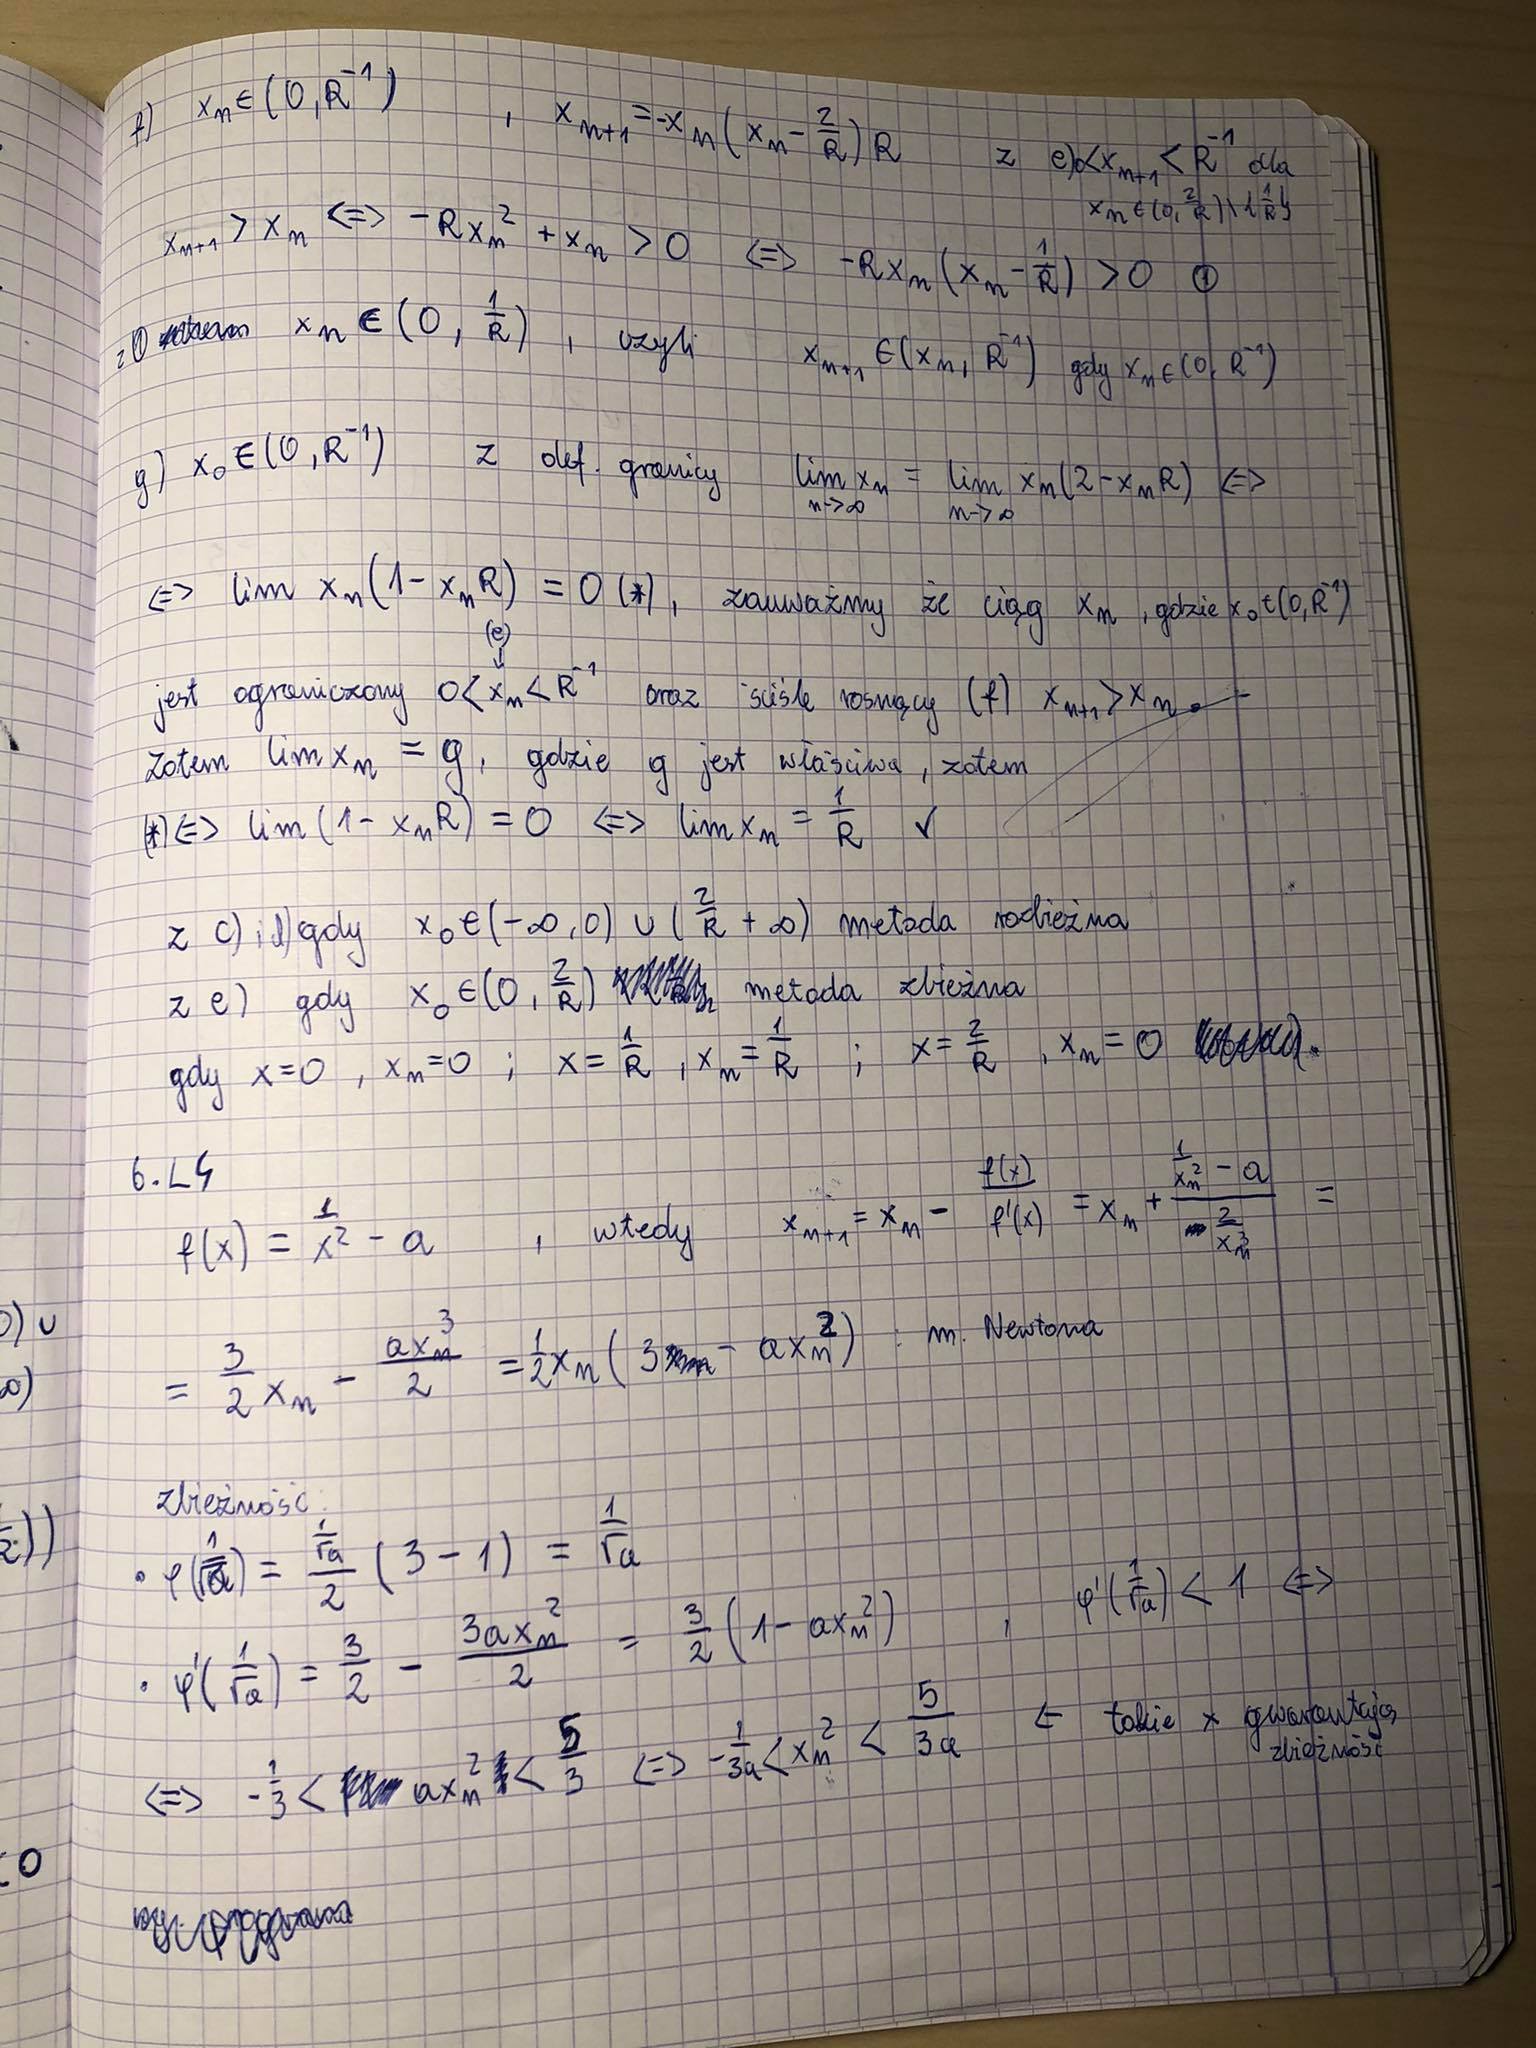 f) xₙ ∈ (0, R⁻¹) , xₙ₊₁ = -xₙ(xₙ - 2/R) R z e) 0 < xₙ₊₁ < R⁻¹ dla
xₙ ∈ (0, 2/R) \ {1/R}
xₙ₊₁ > xₙ <=> -Rxₙ² + xₙ > 0 <=> -Rxₙ(xₙ - 1/R) > 0 ①
z ① xₙ ∈ (0, 1/R) , czyli xₙ₊₁ ∈ (xₙ, R⁻¹) gdy xₙ ∈ (0, R⁻¹)
g) x₀ ∈ (0, R⁻¹) z def. granicy lim xₙ = lim xₙ(2 - xₙR) <=>
n->∞ n->∞
<=> lim xₙ(1 - xₙR) = 0 (*), zauważmy że ciąg xₙ, gdzie x₀ ∈ (0, R⁻¹)
(e)
↓
jest ograniczony 0 < xₙ < R⁻¹ oraz ściśle rosnący (f) xₙ₊₁ > xₙ.
zatem lim xₙ = g, gdzie g jest właściwa, zatem
(*) <=> lim(1 - xₙR) = 0 <=> lim xₙ = 1/R ✓
z c) i d) gdy x₀ ∈ (-∞, 0) ∪ (2/R + ∞) metoda rozbieżna
z e) gdy x₀ ∈ (0, 2/R) metoda zbieżna
gdy x = 0 , xₙ = 0 ; x = 1/R , xₙ = 1/R ; x = 2/R , xₙ = 0 .
6. L4
f(x) = 1/x² - a , wtedy xₙ₊₁ = xₙ - f(x)/f'(x) = xₙ + (1/xₙ² - a)/(2/xₙ³) =
= 3/2 xₙ - axₙ³/2 = 1/2 xₙ (3 - axₙ²) : m. Newtona
zbieżność:
• φ(1/√a) = (1/√a)/2 (3 - 1) = 1/√a
• φ'(1/√a) = 3/2 - 3axₙ²/2 = 3/2 (1 - axₙ²) , φ'(1/√a) < 1 <=>
<=> -1/3 < axₙ² < 5/3 <=> -1/3a < xₙ² < 5/3a ← takie x gwarantują
zbieżność
0) ∪
∞)
))
< 0